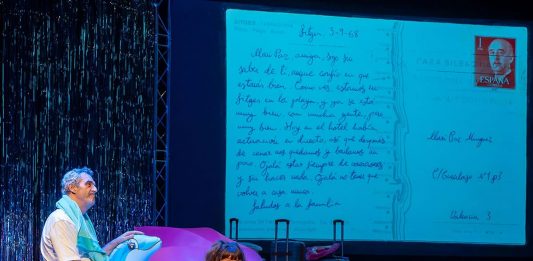 Sitges, 3-9-68
Mari Paz, amiga, sigo sin
saber de ti, aunque confío en que
estarás bien. Como ves, estamos en
Sitges en la playa, y ya se está
muy bien, con mucha gente, pero
muy bien. Hoy en el hotel había
actuaciones en directo, así que después
de cenar nos quedamos y bailamos un
poco. Ojalá estar siempre de vacaciones
y sin hacer nada. Ojalá no tener que
volver a casa nunca.
Saludos a la familia
1
ESPAÑA
Mari Paz Minguez
Nº 1 p3
Valencia 3